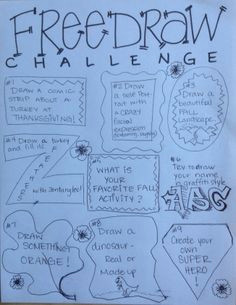 FREEDRAW
CHALLENGE
#1
DRAW A COMIC-
STRIP ABOUT A
TURKEY AT
THANKSGIVING!
#2 DRAW
a self Por-
trait with
a CRAZY
FACIAL
EXPRESSION
#3
Draw a
beautiful
FALL
Landscape
#4 Draw a turkey
and fill it's
FEATHERS
with zentangles!
#5
WHAT IS
YOUR
FAVORITE FALL
ACTIVITY?
#6
Try to draw
your name
in graffiti style
#7
DRAW
SOMETHING
ORANGE!
#8
Draw a
dinosaur-
Real or
Made up
#9
Create your
own
SUPER
HERO!